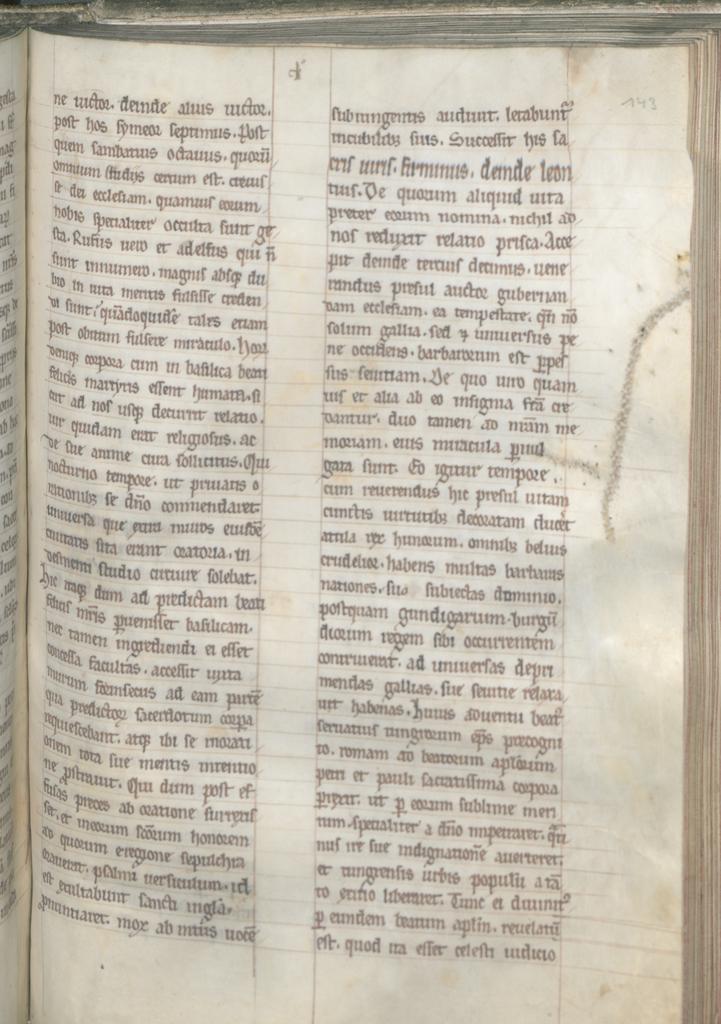 143
ne uictor. deinde alius uictor.
post hos symeor septimus. Post
quem sambatius octauus. quorū
omnium studijs certum est. creuis
se dei ecclesiam. quamuis eorum
nobis specialiter occulta sunt ge
sta. Rufus uero et adelfus qui ñ
sunt innumero. magnis absqȝ du
bio in uita meritis fulsisse creden
di sunt. quādoquidē tales etiam
post obitum fulsere miraculo. Hoꝝ
deniqȝ corpora cum in basilica beati
felicis martyris essent humata. si
cut ad nos usqȝ decurrit relatio.
uir quidam erat religiosus. ac
de sue anime cura sollicitus. Qui
nocturno tempore. ut priuatis o
rationibȝ se dño commendaret
uniuersa que extra muros eiusdē
ciuitatis sita erant oratoria. in
desinenti studio circuire solebat.
Hic itaqȝ dum ad predictam beati
felicis mr̄is ꝑuenisset basilicam.
nec tamen ingrediendi ei esset
concessa facultas. accessit iuxta
murum forinsecus ad eam partē
qua predictoꝝ sacerdotum corꝑa
requiescebant. atqȝ ibi se in orati
onem tota sue mentis intentio
ne ꝓstrauit. Qui dum post ef
fusas preces ab oratione surrexis
set. et in eorum scōrum honorem
ad quorum e regione sepulchra
orauerat. psalmi uersiculum. id
est exultabunt sancti in gła.
ꝓnuntiaret. mox ab intus uoce
subiungentis audiunt. letabuntᷣ
in cubilibȝ suis. Successit his sa
cris uiris. firminus. deinde leon
tius. De quorum aliquid uita
preter eorum nomina. nichil ad
nos reduxit relatio prisca. Acce
pit deinde tercius decimus. uene
randus presul auctor gubernan
dam ecclesiam. ea tempestate. qñ nō
solum gallia. sed ⁊ uniuersus pe
ne occidens. barbarorum est ꝑpes
sus seuitiam. De quo uiro quam
uis et alia ab eo insignia fc̄a cre
dantur. duo tamen ad nr̄am me
moriam. eius miracula ꝑuul
gata sunt. Eo igitur tempore.
cum reuerendus hic presul uitam
cunctis uirtutibȝ decoratam ducēt
attila rex hunorum. omnibȝ beluis
crudelior. habens multas barbaras
nationes. suo subiectas dominio.
postquam gundigarium. burgū
dionum regem sibi occurrentem
contriuerat. ad uniuersas depri
mendas gallias. sue seuitie relaxa
uit habenas. Huius aduentū beatᷣ
seruatius tungrorum ep̄s precogni
to. romam ad beatorum aplōrum
petri et pauli sacratissima corpora
ꝑrexit. ut ꝑ eorum sublime meri
tum. specialiter a dño impetraret. qͣti
nus ire sue indignationē auerteret.
et tungrensis urbis populū a tā
to exitio liberaret. Tunc ei diuinitᷣ
ꝑ eundem beatum aplm̄. reuelatū
est. quod ita esset celesti iudicio